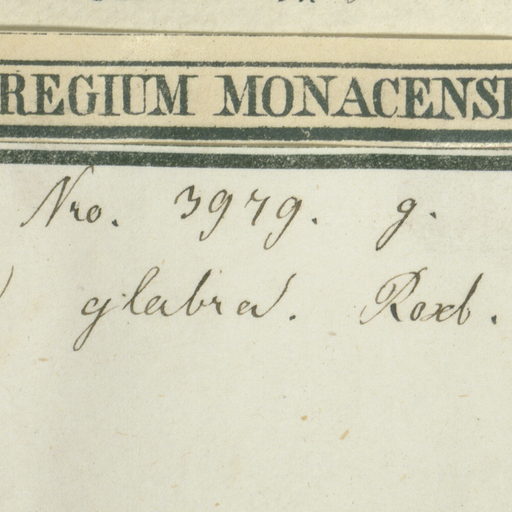 REGIUM MONACENS
Nro. 3979. g.
glabra. Roxb.